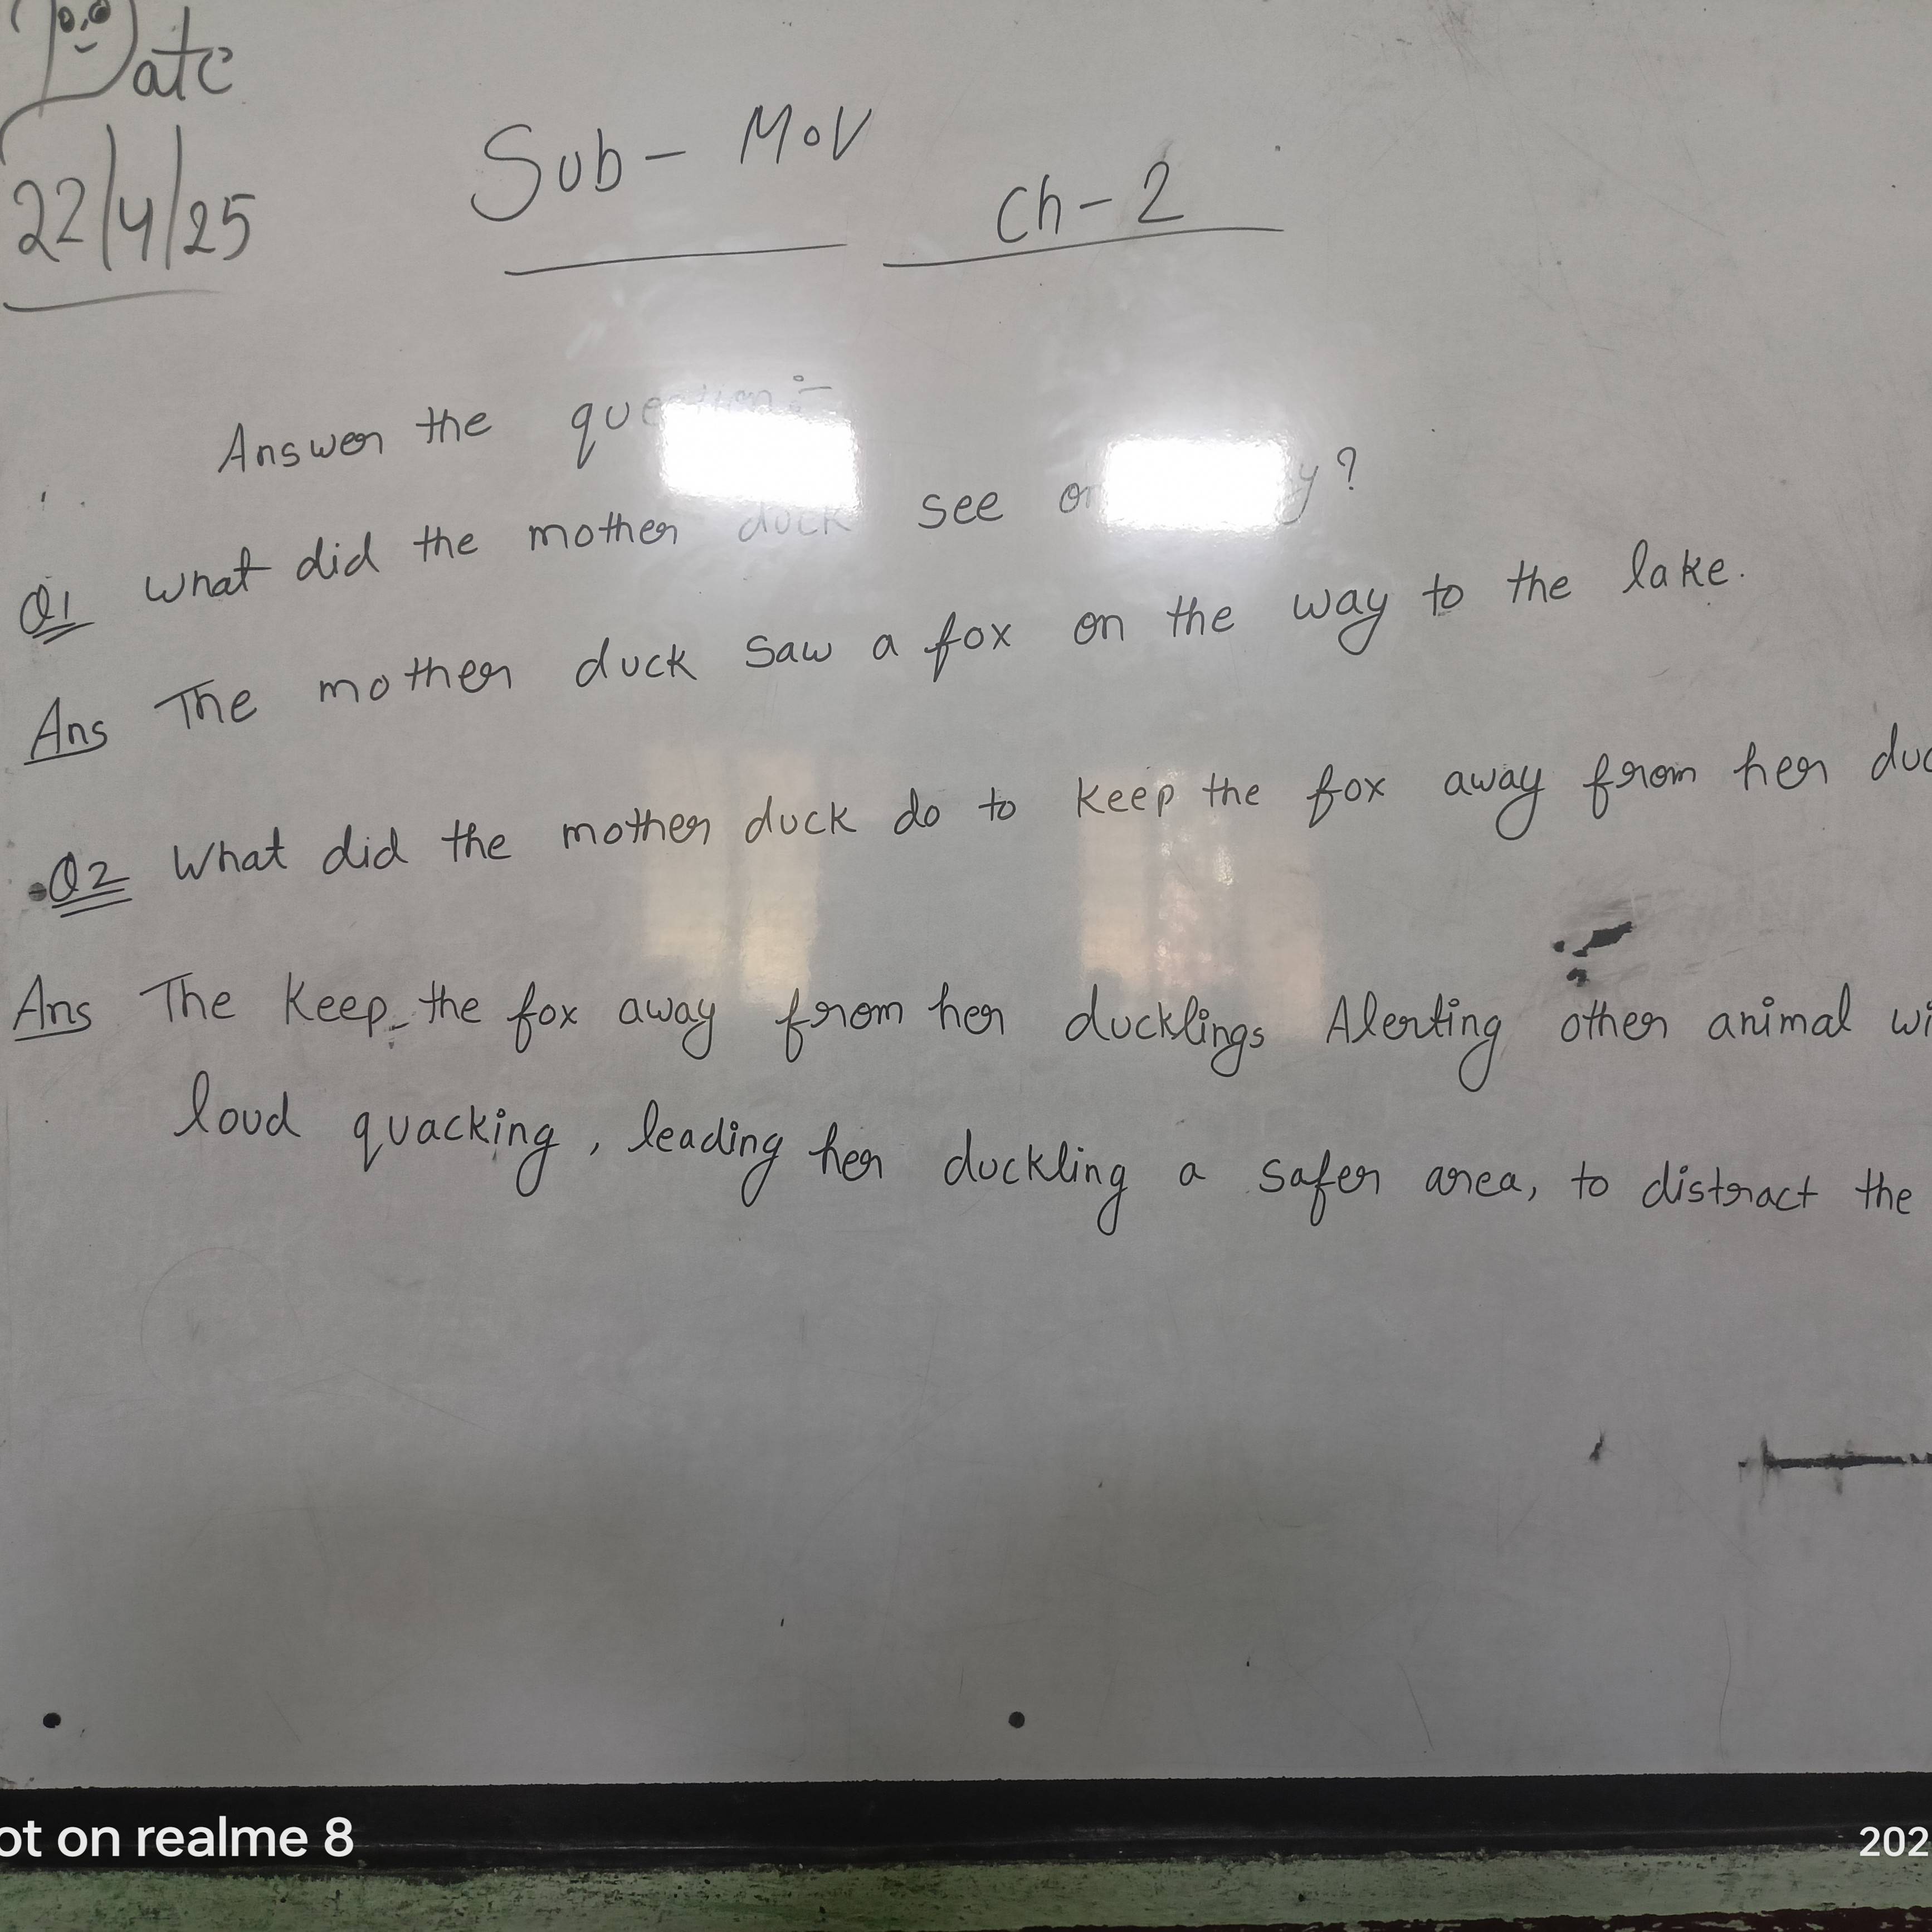 Date
22/4/25
Sub - MoV
Ch - 2
Answer the question :-
Q1 What did the mother duck see on y?
Ans The mother duck saw a fox on the way to the lake.
Q2 What did the mother duck do to keep the fox away from her duc
Ans The keep the fox away from her ducklings Alerting other animal wi
loud quacking, leading her duckling a safer area, to distract the
ot on realme 8
202